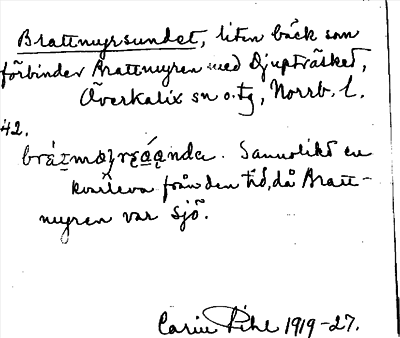 Brattmyrsundet, liten bäck som
förbinder Brattmyren med Djupträsket,
Överkalix sn o. tg, Norrb. l.
42.
Sannolikt en
kvarleva från den tid, då Bratt-
myren var sjö.
Carin Pihl 1919-27.